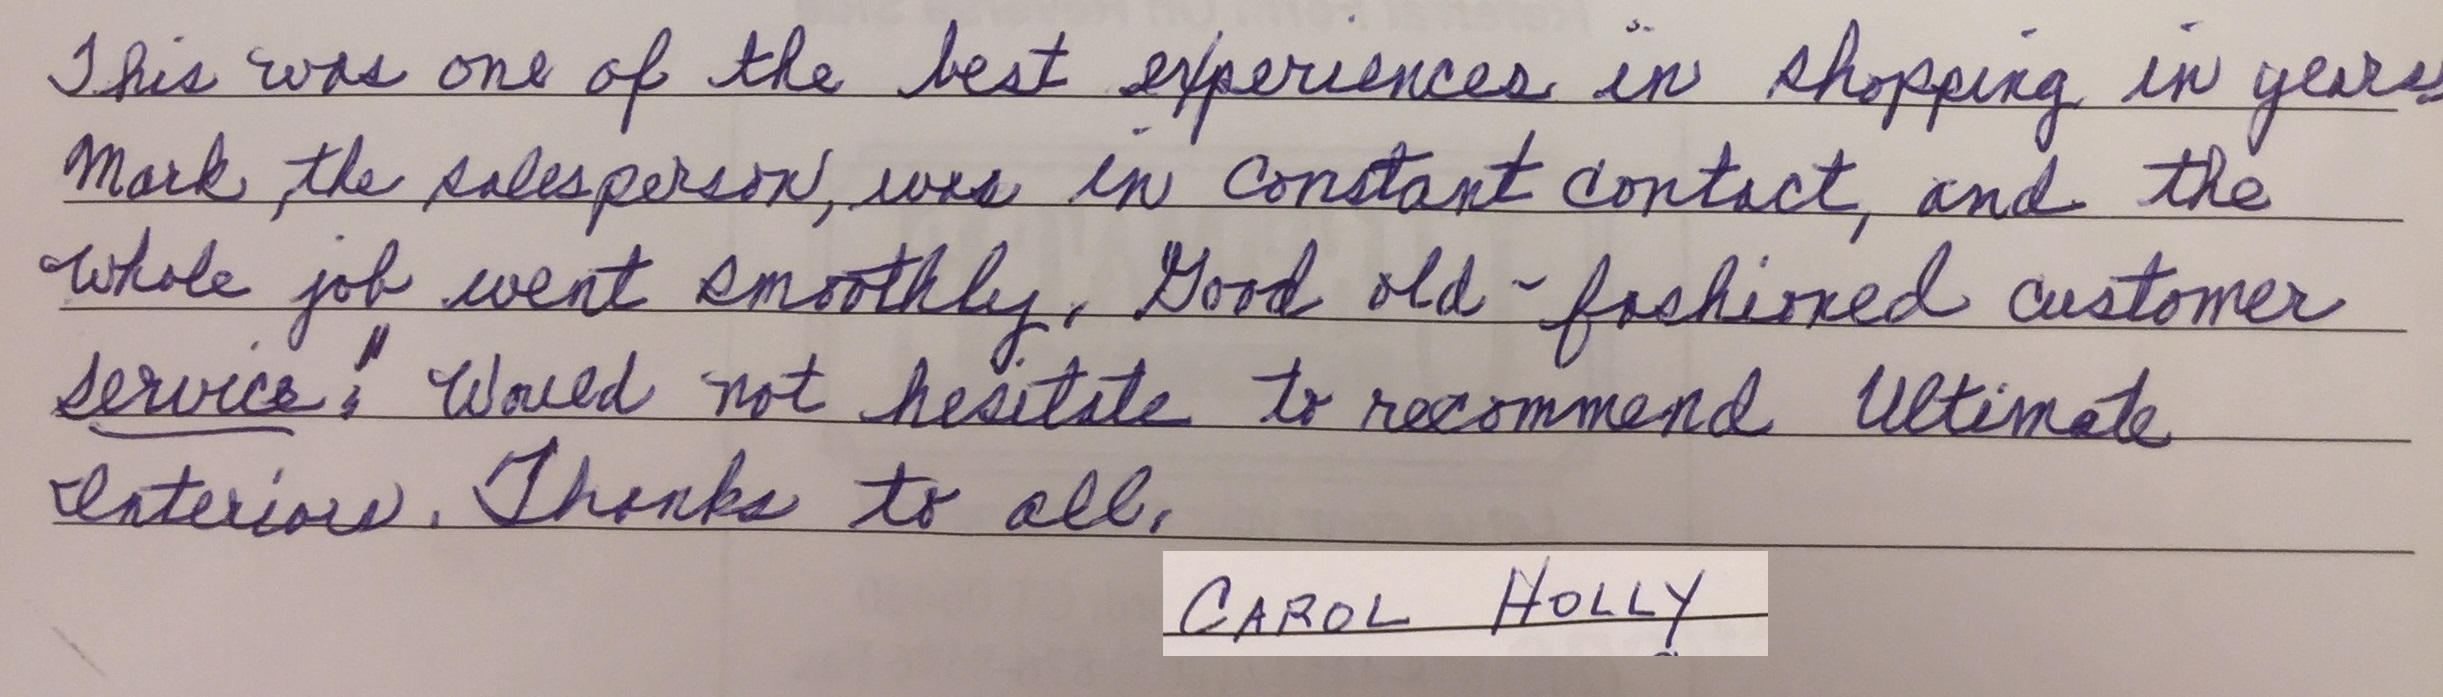 This was one of the best experiences in shopping in years
Mark, the salesperson, was in constant contact, and the
whole job went smoothly. "Good old-fashioned customer
service." Would not hesitate to recommend Ultimate
Interiors. Thanks to all.
CAROL HOLLY